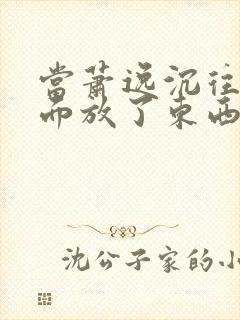 當蕭逸沉往
而放了東西
沈公子家的小